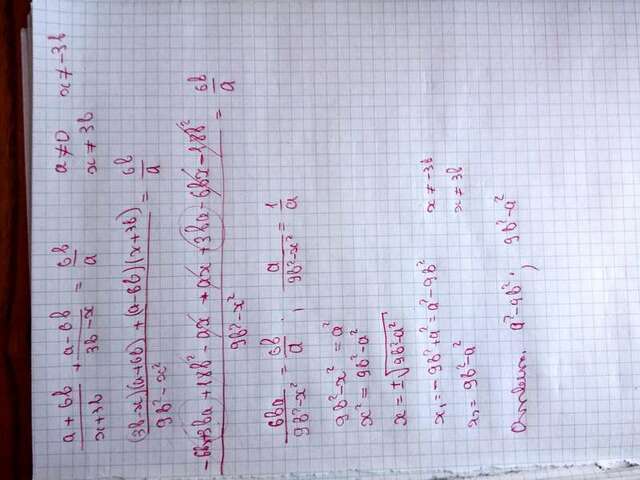 (a + 6b)/(x+3b) + (a-6b)/(3b-x) = 6b/a    a ≠ 0    x ≠ -3b
x ≠ 3b
((3b-x)(a+6b) + (a-6b)(x+3b))/(9b²-x²) = 6b/a
(-6bx+3ba+18b²-ax+ax+3ba-6bx-18b²)/(9b²-x²) = 6b/a
6ba/(9b²-x²) = 6b/a ; a/(9b²-x²) = 1/a
9b²-x² = a²
x² = 9b²-a²
x = ±√(9b²-a²)
x₁ = -9b²+a² = a²-9b²    x ≠ -3b
x₂ = 9b²-a²    x ≠ 3b
Ответ. a²-9b² ; 9b²-a²